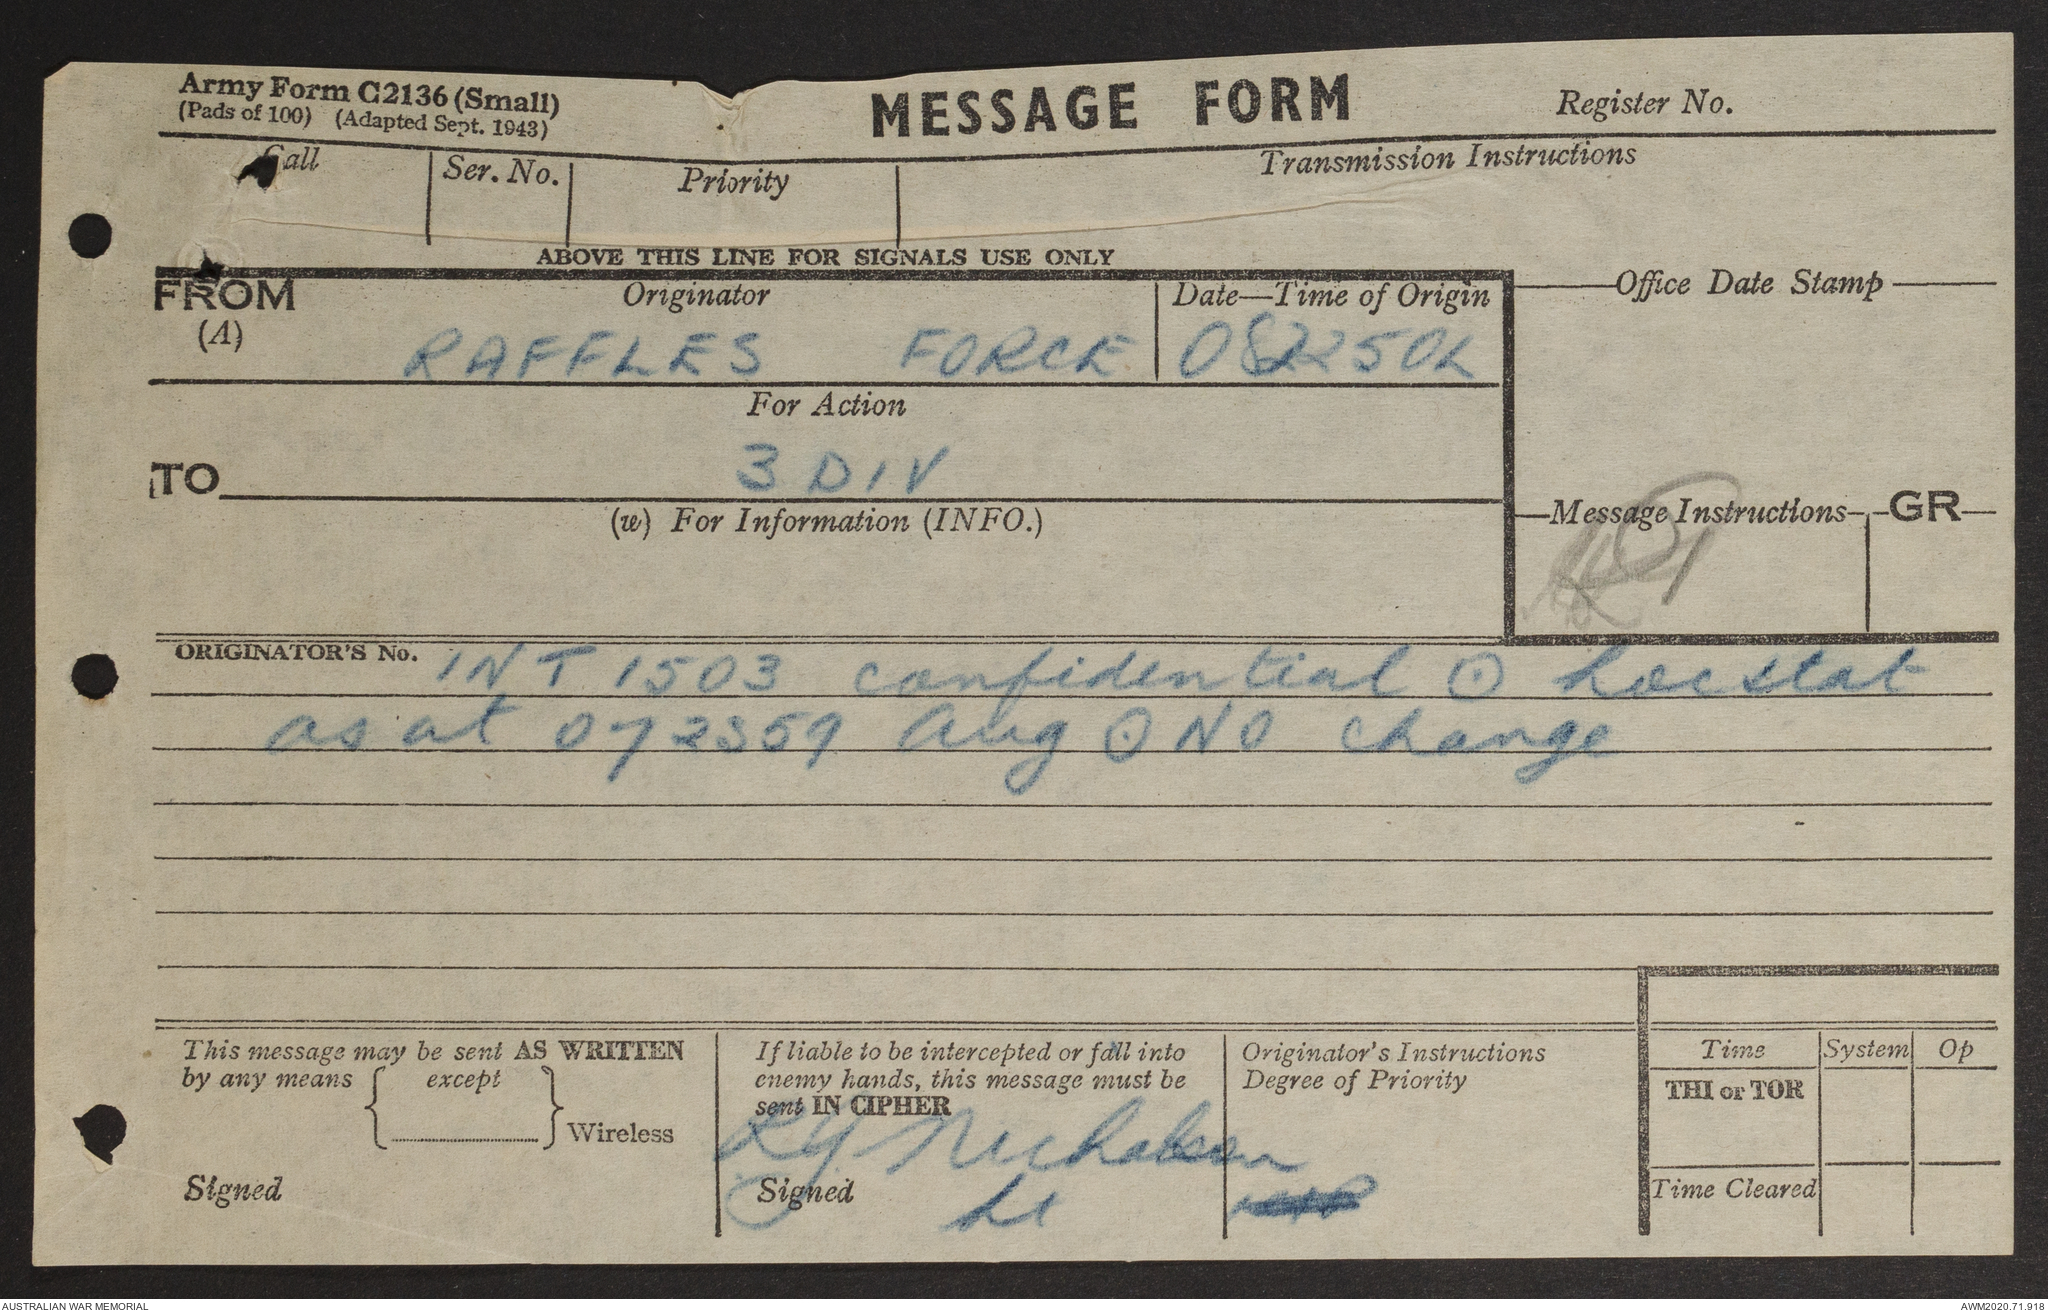 Army Form C2136 (Small)
(Pads of 100) (Adapted Sept. 1943)
MESSAGE FORM
Register No.
Call
Ser. No.
Priority
Transmission Instructions
ABOVE THIS LINE FOR SIGNALS USE ONLY
FROM
(A)
Originator
RAFFLES FORCE
Date—Time of Origin
Office Date Stamp
For Action
TO
3 DIV
(w) For Information (INFO.)
Message Instructions
GR
ORIGINATOR'S No.
INT 1503 confidential ⊙ Locstat
as at 072359 Aug ⊙ NO change
This message may be sent AS WRITTEN
by any means { except } Wireless
Signed
If liable to be intercepted or fall into
enemy hands, this message must be
sent IN CIPHER
Nicholson
Signed
Lt
Originator's Instructions
Degree of Priority
Time
System
Op
THI or TOR
Time Cleared
AUSTRALIAN WAR MEMORIAL
AWM2020.71.918